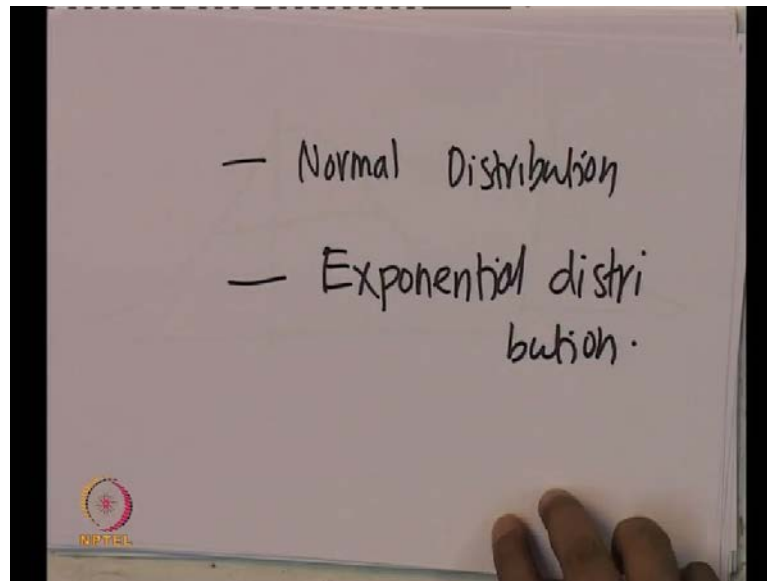 — Normal Distribution
— Exponential distri
bution.
NPTEL